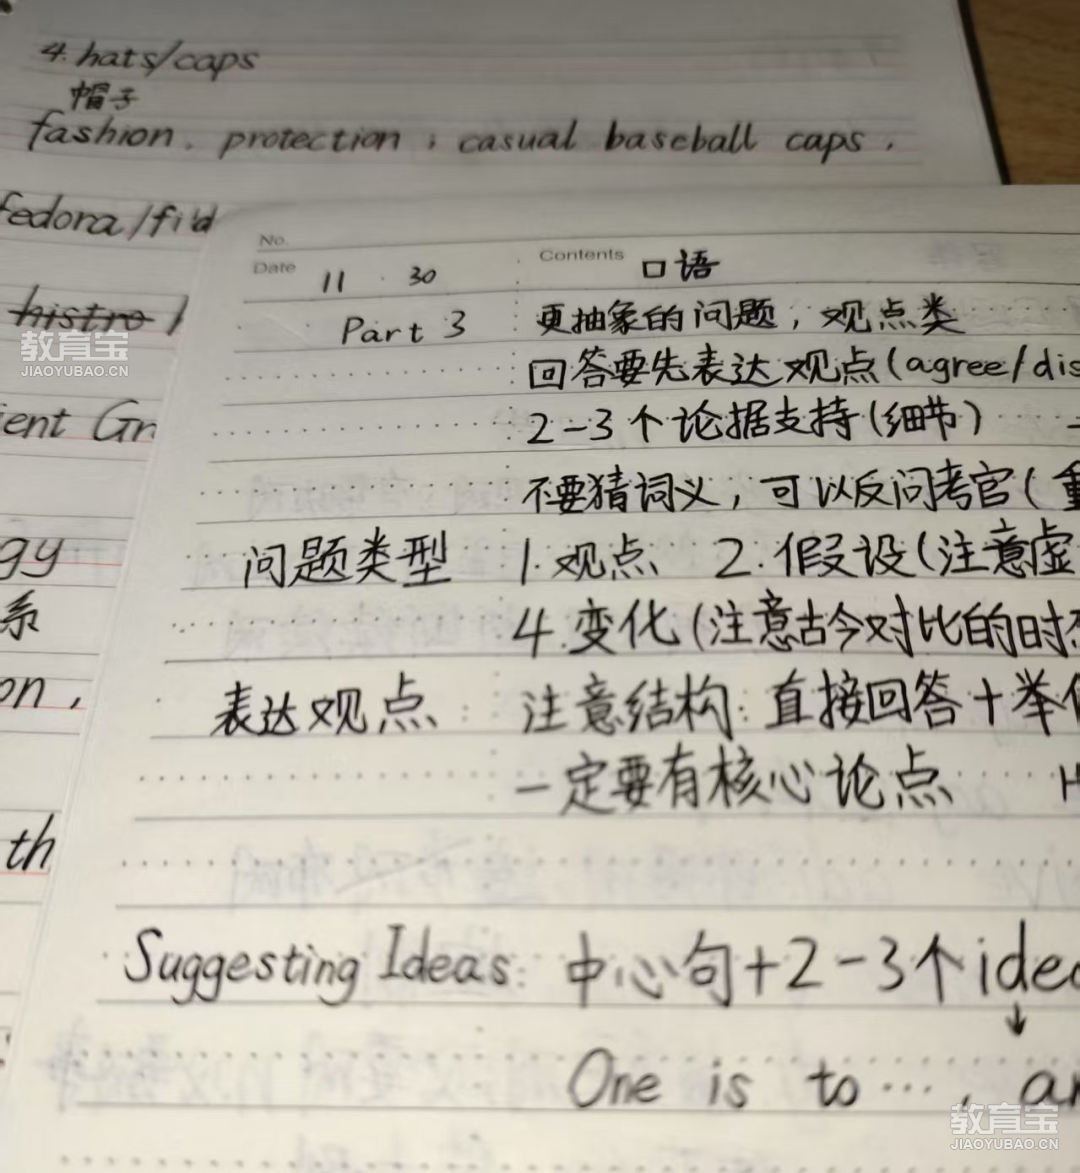 4. hats/caps
帽子
fashion, protection, casual baseball caps,
fedora/
histro
No.
Date 11 30
Contents 口语
Part 3 更抽象的问题,观点类
回答要先表达观点(agree/dis
2-3个论据支持(细节)
不要猜词义,可以反问考官(重
问题类型 1.观点 2.假设(注意虚
4.变化(注意古今对比的时态
表达观点: 注意结构:直接回答+举例
一定要有核心论点 H
Suggesting Ideas: 中心句+2-3个idea
↓
One is to ..., an
ient Gr
gy
系
on,
th
教育宝
JIAOYUBAO.CN
教育宝
JIAOYUBAO.CN